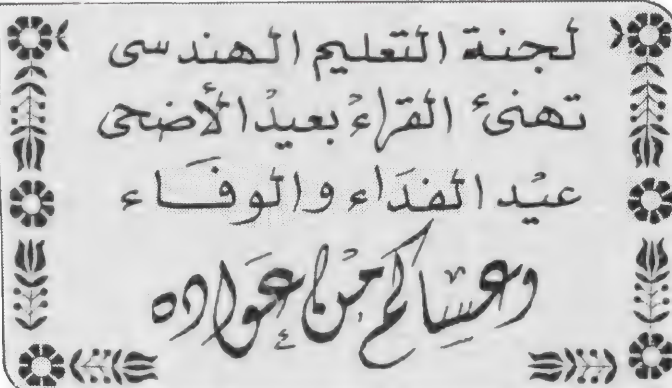 لجنة التعليم الهندسى
تهنئ القراء بعيد الأضحى
عيد الفداء والوفاء
وعساكم من عواده